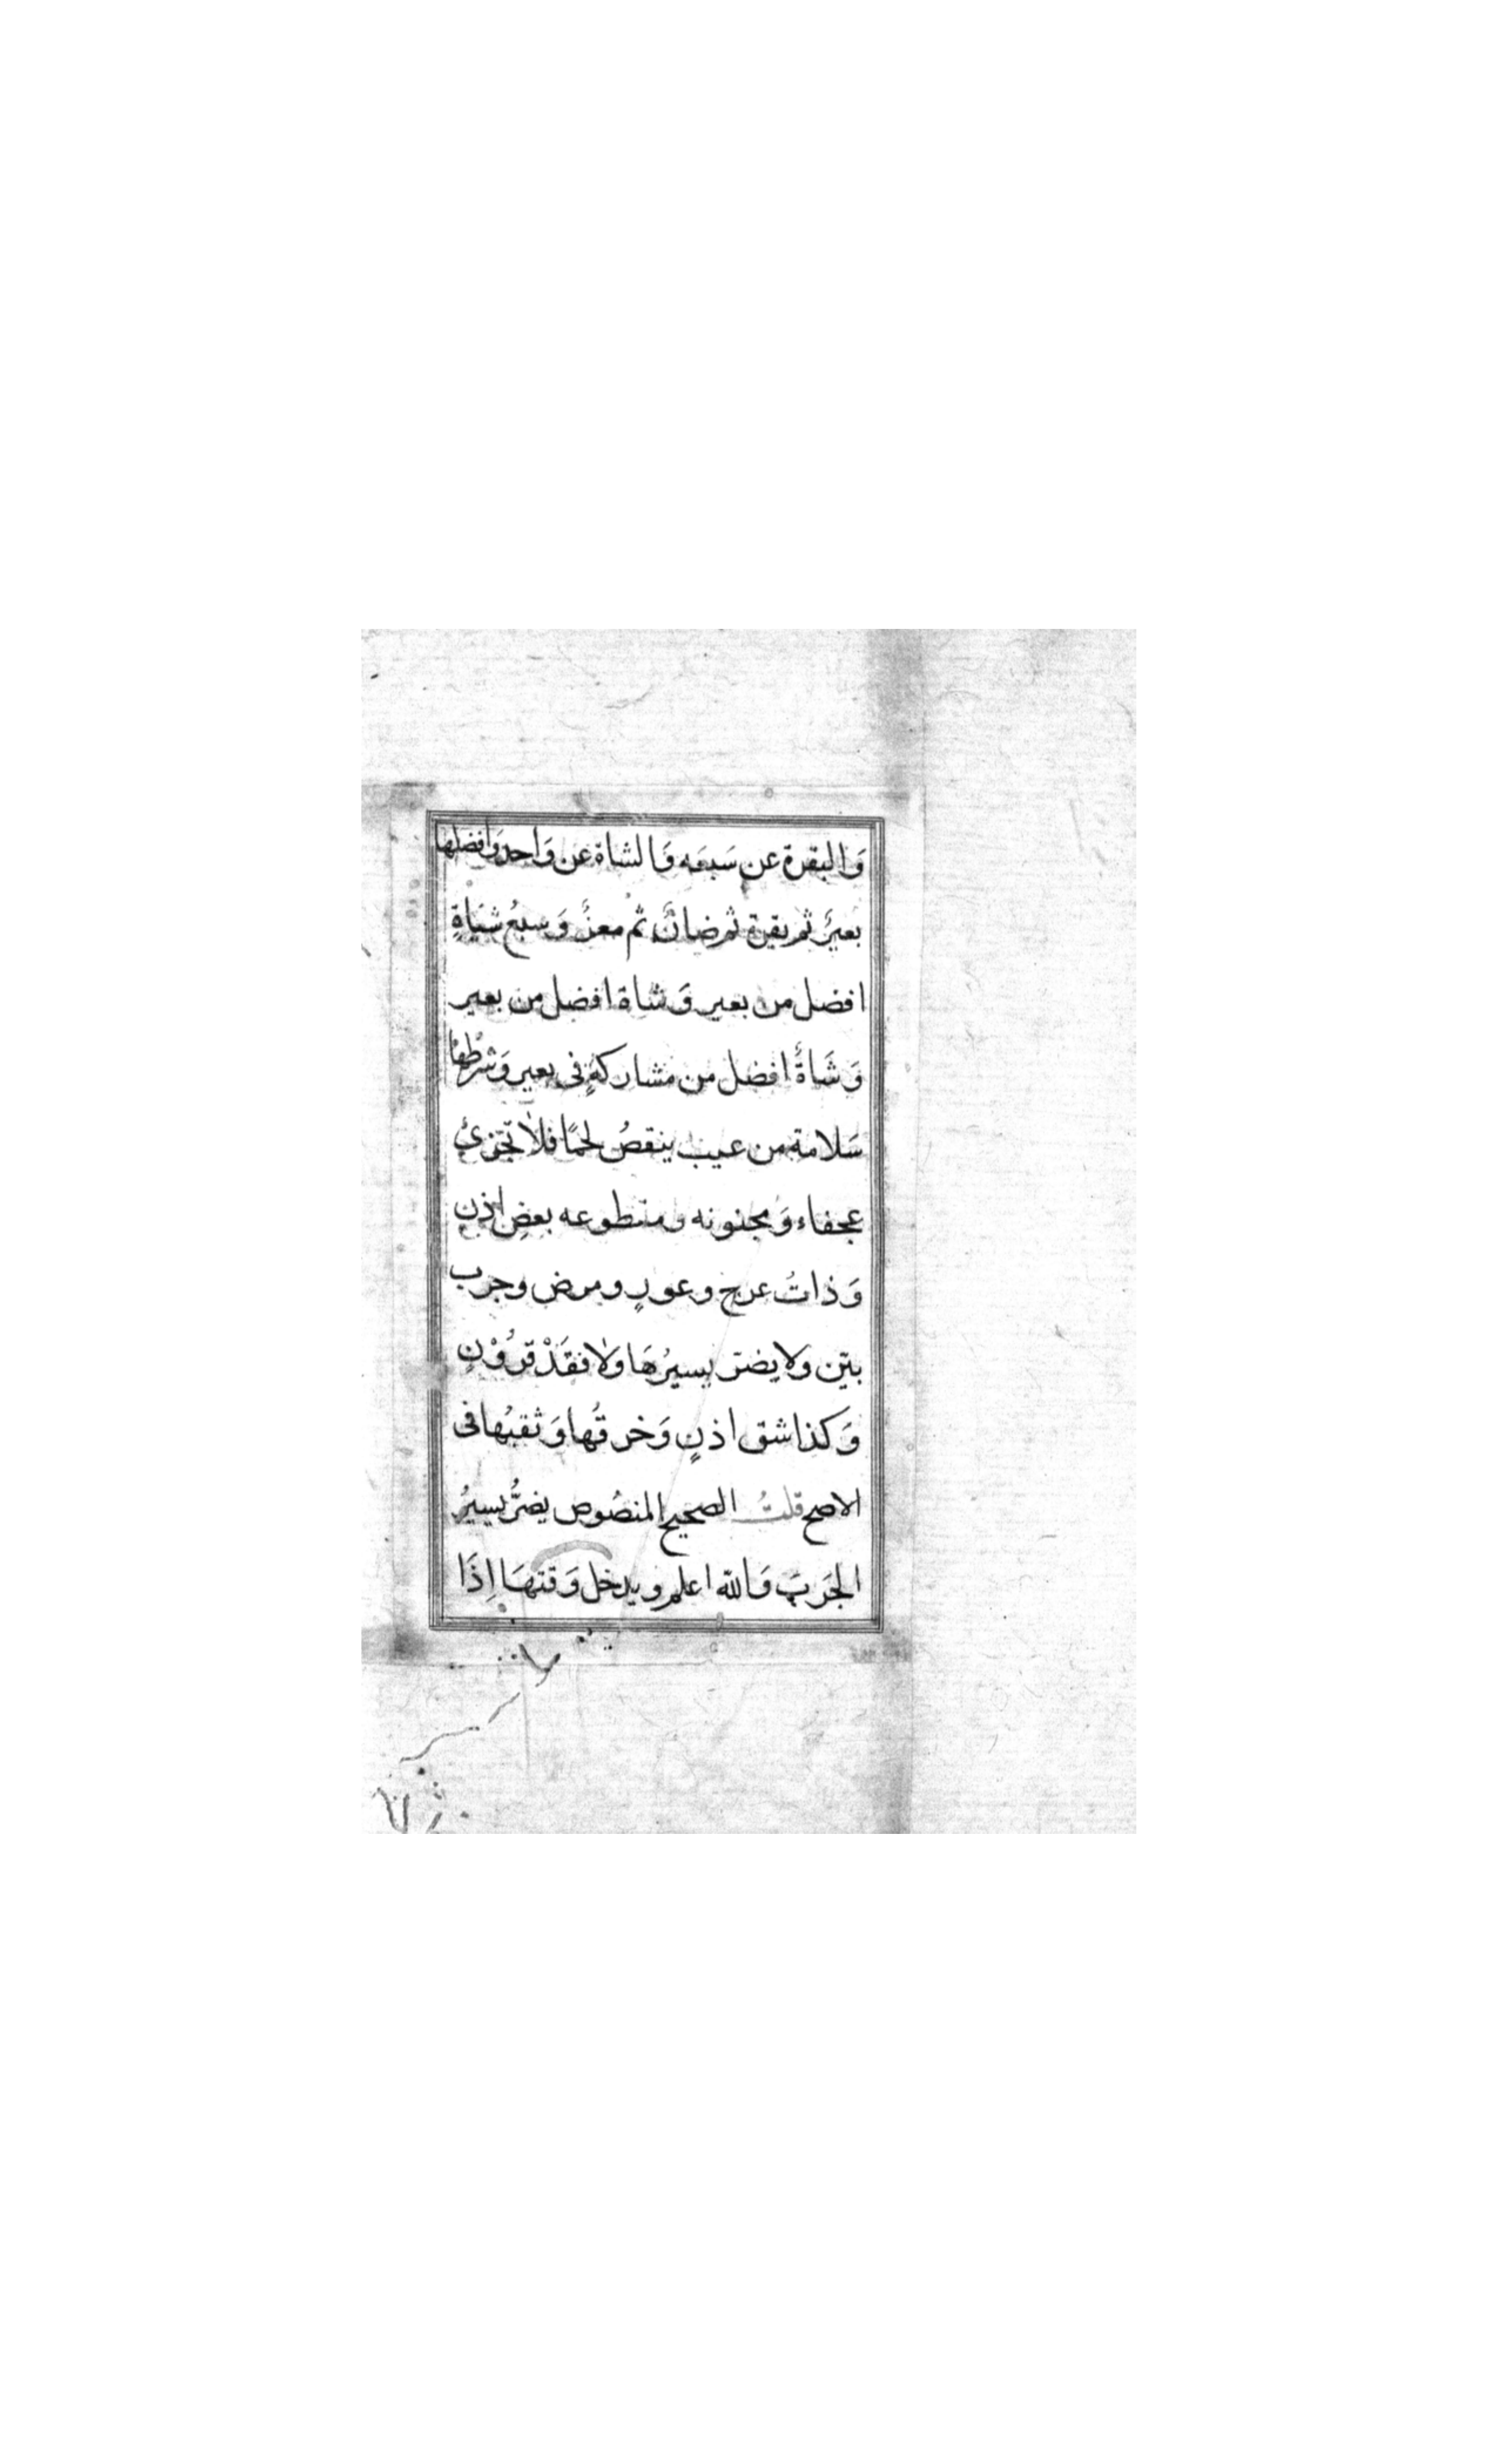 وَالبقرة عن سَبعَه وَالشاة عن وَاحدٍ وَافضلها
بعيرٌ ثم بقرة ثم ضانٌ ثم معزٌ وَسبعُ شيَاةٍ
افضل من بعير وَشاة افضل من بعير
وَشَاةٌ افضل من مشاركةٍ فى بعير وَشرطُهَا
سَلامة من عيب ينقصُ لحمًا فلا تجزئُ
عجفاء وَمجنونه ومقطوعه بعضِ اذنٍ
وَذاتُ عرجٍ وعورٍ ومرض وجرب
بيّن ولا يضر يسيرُهَا ولا فقَدْ قرُوْنٍ
وَكذا شق اذنٍ وَخرقُها وَثقبُها فى
الاصح قلتُ الصحيح المنصُوص يضرُّ يسيرُ
الجَرَبَ وَالله اعلم ويدخل وَقتهَا اِذَا